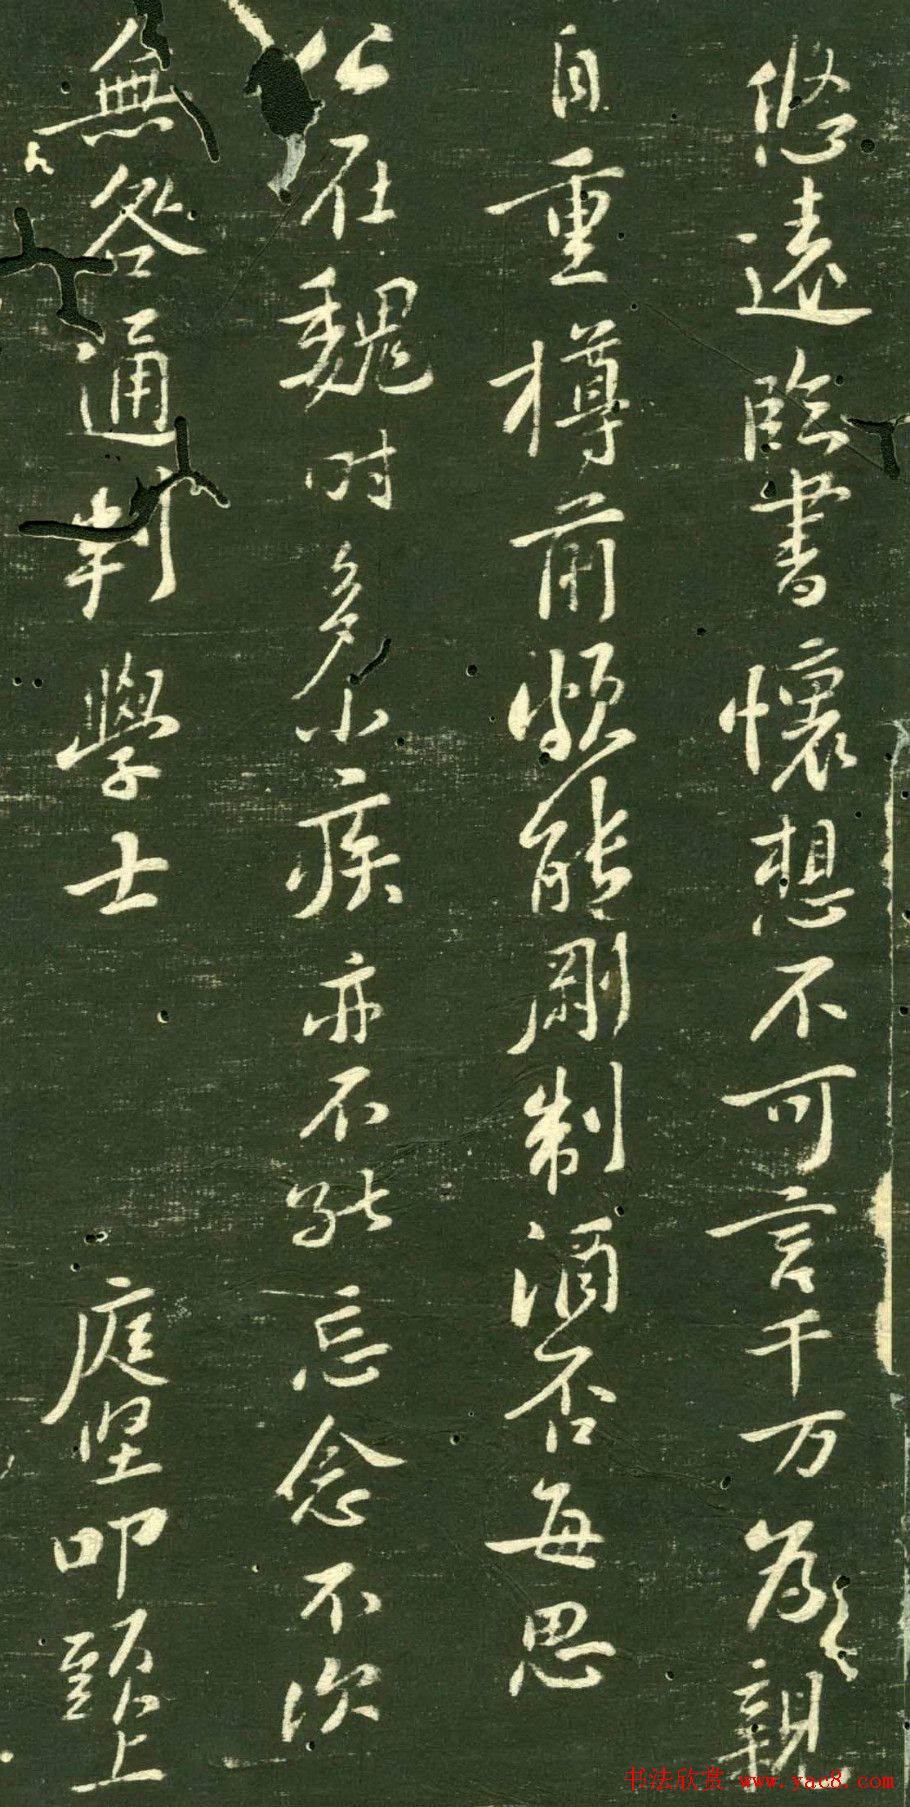 悠遠臨書懷想不可言千万為親
自重樽前頗能剛制酒否每思
公在魏时多小疾亦不能忘念不次
無咎通判學士 庭坚叩頭上
书法欣赏 www.yac8.com